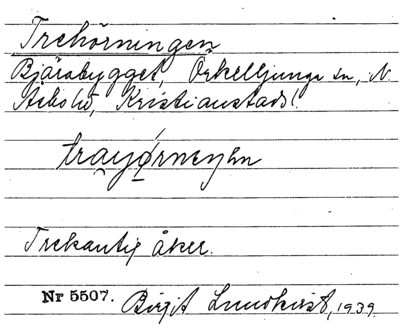 Trehörningen
Bjärabygget, Örkelljunga sn, N.
Åsbo hd, Kristianstads l.
Trekantig åker.
Nr 5507. Birgit Lundkvist, 1939.